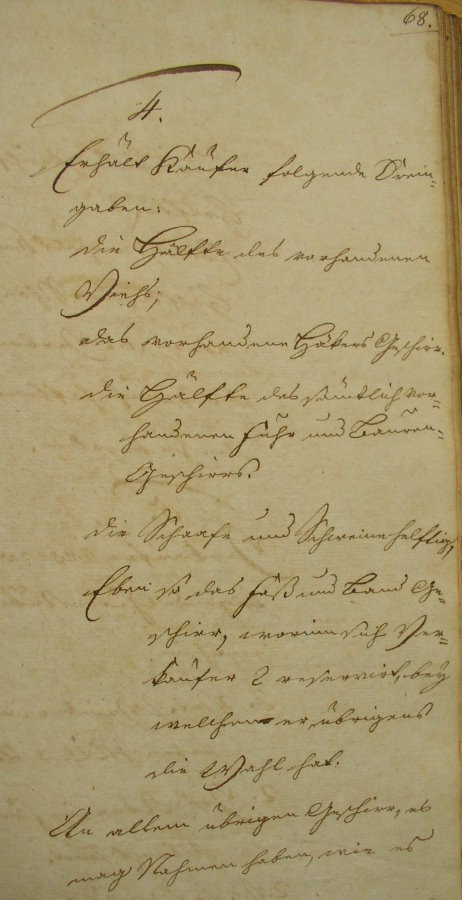 68.
4.
Erhält Käufer folgende Drein-
gaben:
die Hälfte des vorhandenen
Viehs;
das vorhandene Häkers Geschirr.
die Hälfte des sämtlich vor-
handenen Fuhr und Bauren-
Geschirrs.
die Schaafe und Schweine helftig,
Eben so das Faß und Band Ge-
schirr, worinn sich Ver-
käufer 2 reservirt, bey
welchen er übrigens
die Wahl hat.
An allem übrigen Geschirr, es
mag Nahmen haben, wie es